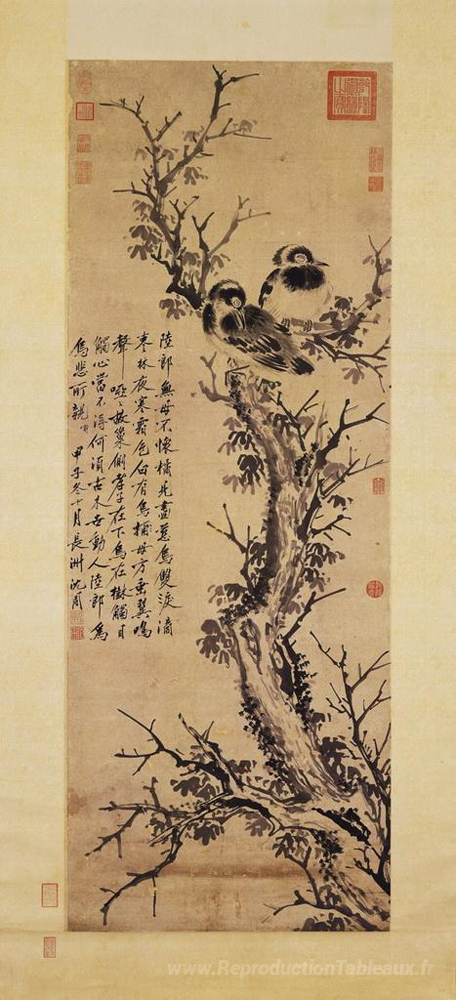 陸郎無母不懷橘見畫慈烏雙淚滴
寒林夜寒霜色白有烏母方垂翼鳴
聲啞啞故巢側孝子在下烏在樹觸目
觸心當不得何須古木動人陸郎為
烏悲所親甲子冬十月長洲沈周
www.ReproductionTableaux.fr